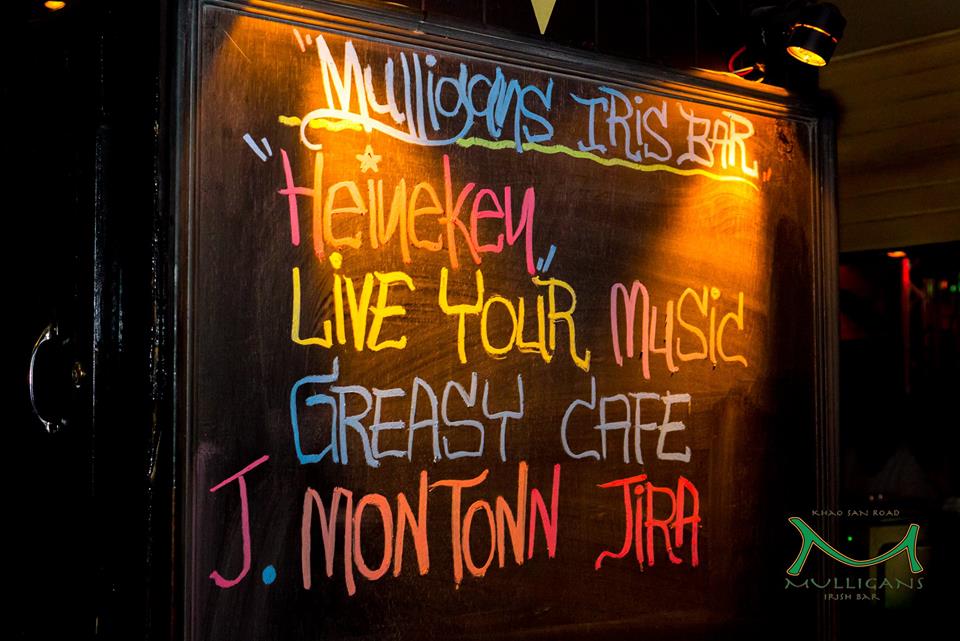 "Mulligans IRiS BAR"
"Heineken"
LiVE YOUR MUSiC
GREASY CAFE
J. MONTONN JiRA
KHAO SAN ROAD
MULLIGANS
IRISH BAR